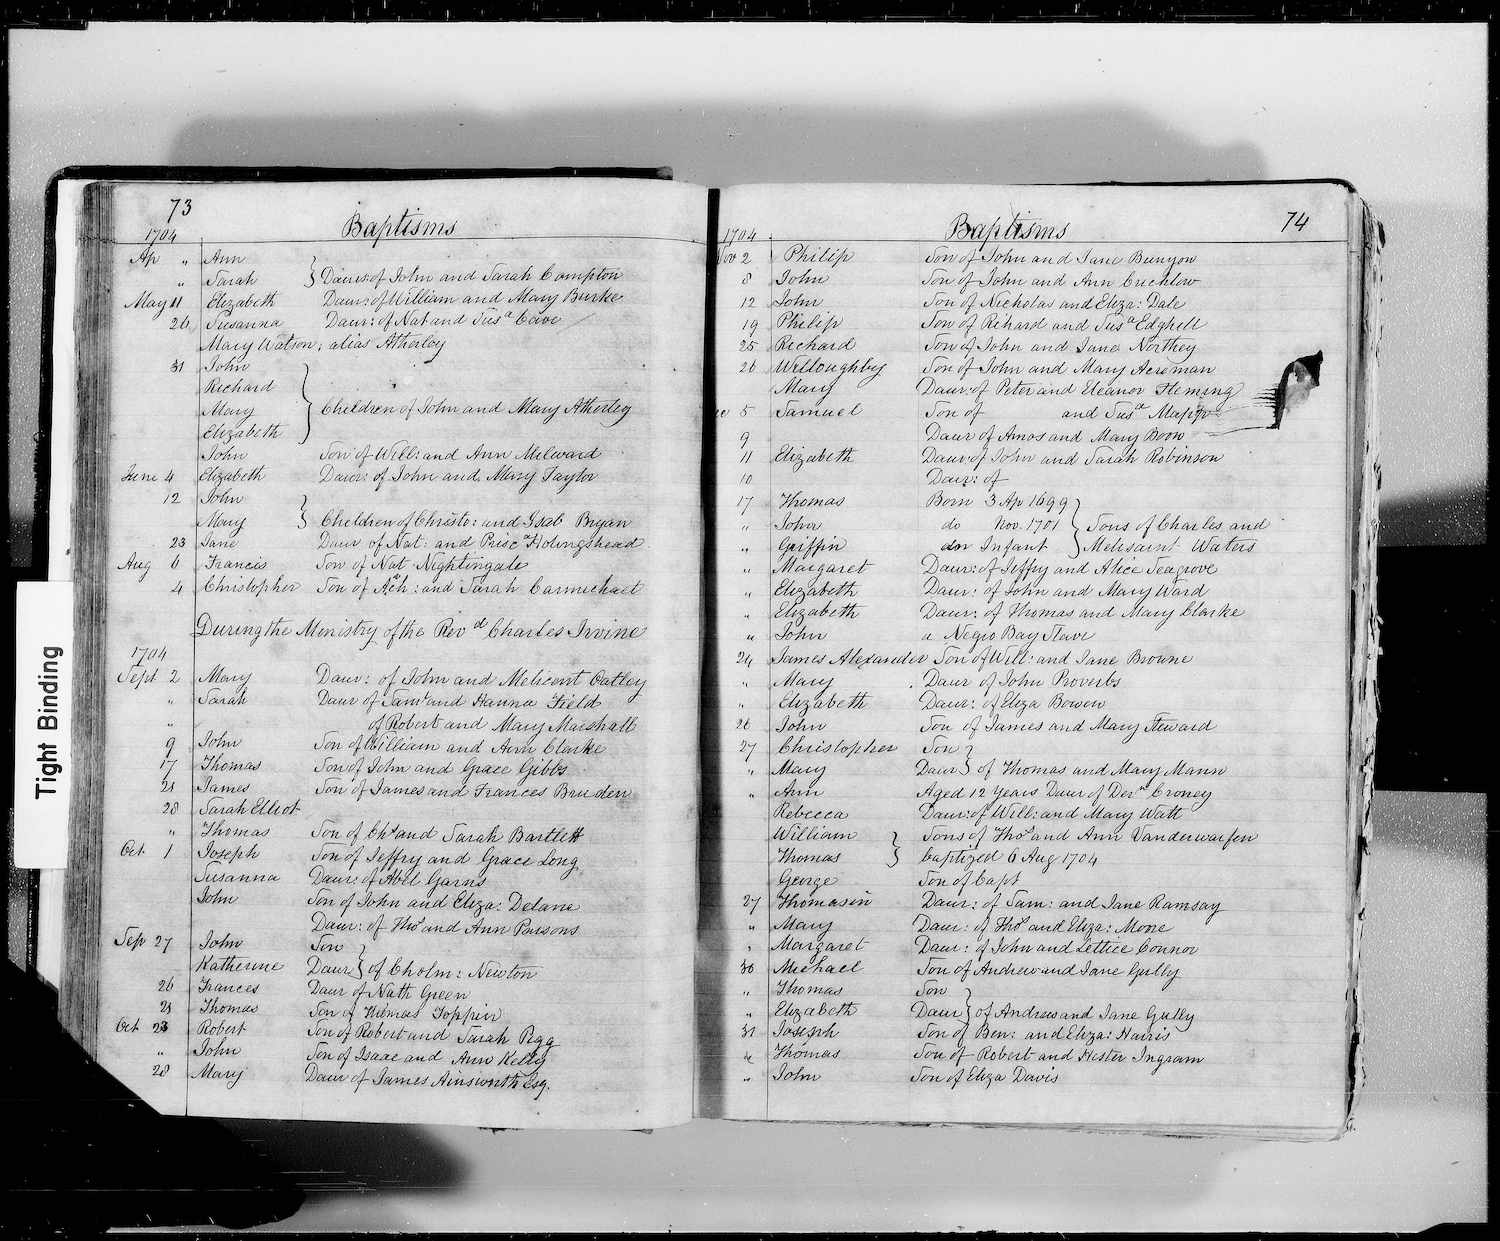 73
Baptisms
1704
Ap " Ann
" Sarah } Daurs: of John and Sarah Compton
May 11 Elizabeth Daur: of William and Mary Burke
26 Susanna Daur: of Nat and Susa Cave
Mary Watson, alias Atherley
31 John
Richard
Mary } Children of John and Mary Atherley
Elizabeth
John Son of Will: and Ann Milward
June 4 Elizabeth Daur: of John and Mary Taylor
12 John
Mary } Children of Christo: and Isab Bryan
23 Jane Daur of Nat: and Prisca Holingshead
Aug 6 Francis Son of Nat Nightingale
4 Christopher Son of Ach: and Sarah Carmichael
During the Ministry of the Revd Charles Irvine
1704
Sept 2 Mary Daur: of John and Melicent Oatley
" Sarah Daur of Saml and Hanna Field
" of Robert and Mary Marshall
9 John Son of William and Ann Clarke
17 Thomas Son of John and Grace Gibbs
21 James Son of James and Frances Bruden
28 Sarah Elliot
" Thomas Son of Chs and Sarah Bartlett
Oct 1 Joseph Son of Jeffry and Grace Long
Susanna Daur: of Abel Garns
John Son of John and Eliza: Delane
Daur: of Thos and Ann Parsons
Sep 27 John Son
Katherine Daur } of Cholm: Newton
26 Frances Daur of Nath Green
28 Thomas Son of Thomas Toppin
Oct 23 Robert Son of Robert and Sarah Pegg
" John Son of Isaac and Ann Kelly
28 Mary Daur of James Ainsworth Esq.
74
Baptisms
1704
Nov 2 Philip Son of John and Jane Bunyon
8 John Son of John and Ann Cuchlow
12 John Son of Nicholas and Eliza: Dale
19 Philip Son of Rihard and Susa Edghill
25 Richard Son of John and Jane Northey
26 Willoughby Son of John and Mary Acreman
Mary Daur: of Peter and Eleanor Fleming
5 Samuel Son of and Susa Mapp
9 Daur of Amos and Mary Boon
11 Elizabeth Daur of John and Sarah Robinson
10 Daur: of
17 Thomas Born 3 Ap 1699
" John do Nov. 1701 } Sons of Charles and
" Griffin an Infant } Melisaint Waters
" Margaret Daur: of Jeffry and Alice Seagrove
" Elizabeth Daur: of John and Mary Ward
" Elizabeth Daur: of Thomas and Mary Clarke
" John a Negro Bay Slave
24 James Alexander Son of Will: and Jane Browne
" Mary Daur of John Proverbs
" Elizabeth Daur: of Eliza Bowen
26 John Son of James and Mary Steward
27 Christopher Son
" Mary Daur } of Thomas and Mary Mann
" Ann Aged 12 years Daur of Dera Croney
Rebecca Daur: of Will: and Mary Watt
William } Sons of Thos and Ann Vanderwarfen
Thomas } baptized 6 Aug 1704
George Son of Capt
27 Thomasin Daur: of Sam: and Jane Ramsay
" Mary Daur: of Thos and Eliza: Moore
" Margaret Daur: of John and Lettice Connor
30 Michael Son of Andrew and Jane Gully
" Thomas Son
" Elizabeth Daur } of Andrew and Jane Gully
31 Joseph Son of Ben: and Eliza: Harris
" Thomas Son of Robert and Hester Ingram
" John Son of Eliza Davis
Tight Binding